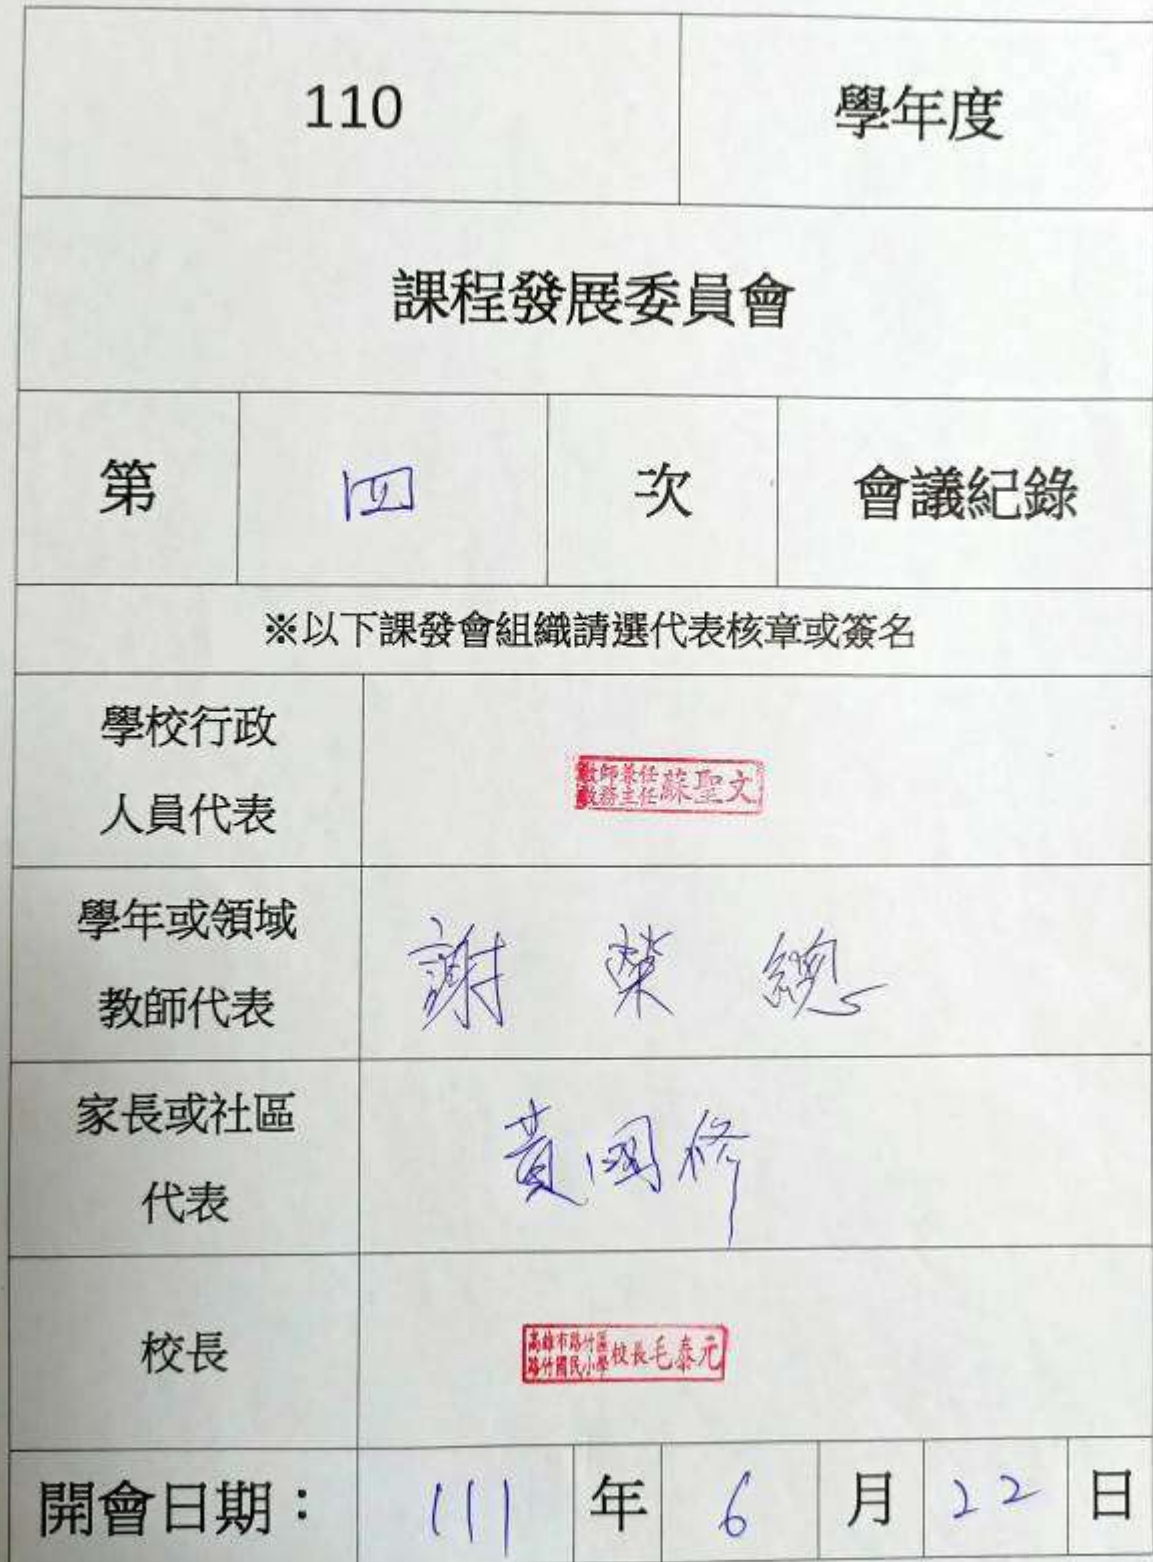 110 學年度
課程發展委員會
第 四 次 會議紀錄
※以下課發會組織請選代表核章或簽名
學校行政
人員代表
教師兼任
教務主任 蘇聖文
學年或領域
教師代表
謝榮總
家長或社區
代表
黃國修
校長
高雄市路竹區
路竹國民小學 校長毛泰元
開會日期： 111 年 6 月 22 日